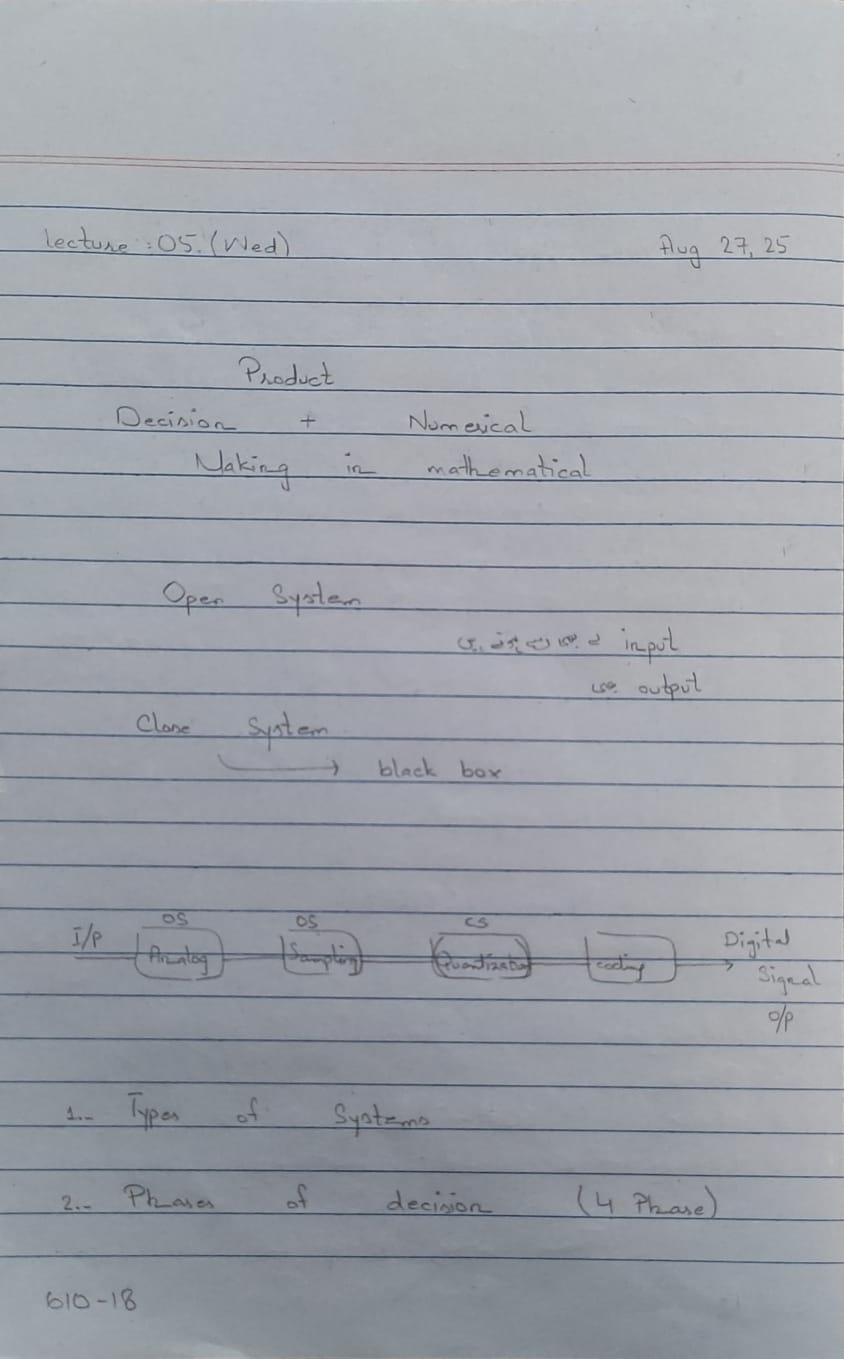 lecture : 05. (Wed) Aug 27, 25
Product
Decision + Numerical
Making in mathematical
Open System
input
output
Close System
black box
OS OS CS
I/P Analog Sampling Quantization coding Digital
Signal
O/P
1.- Types of Systems
2.- Phases of decision (4 Phase)
610-18